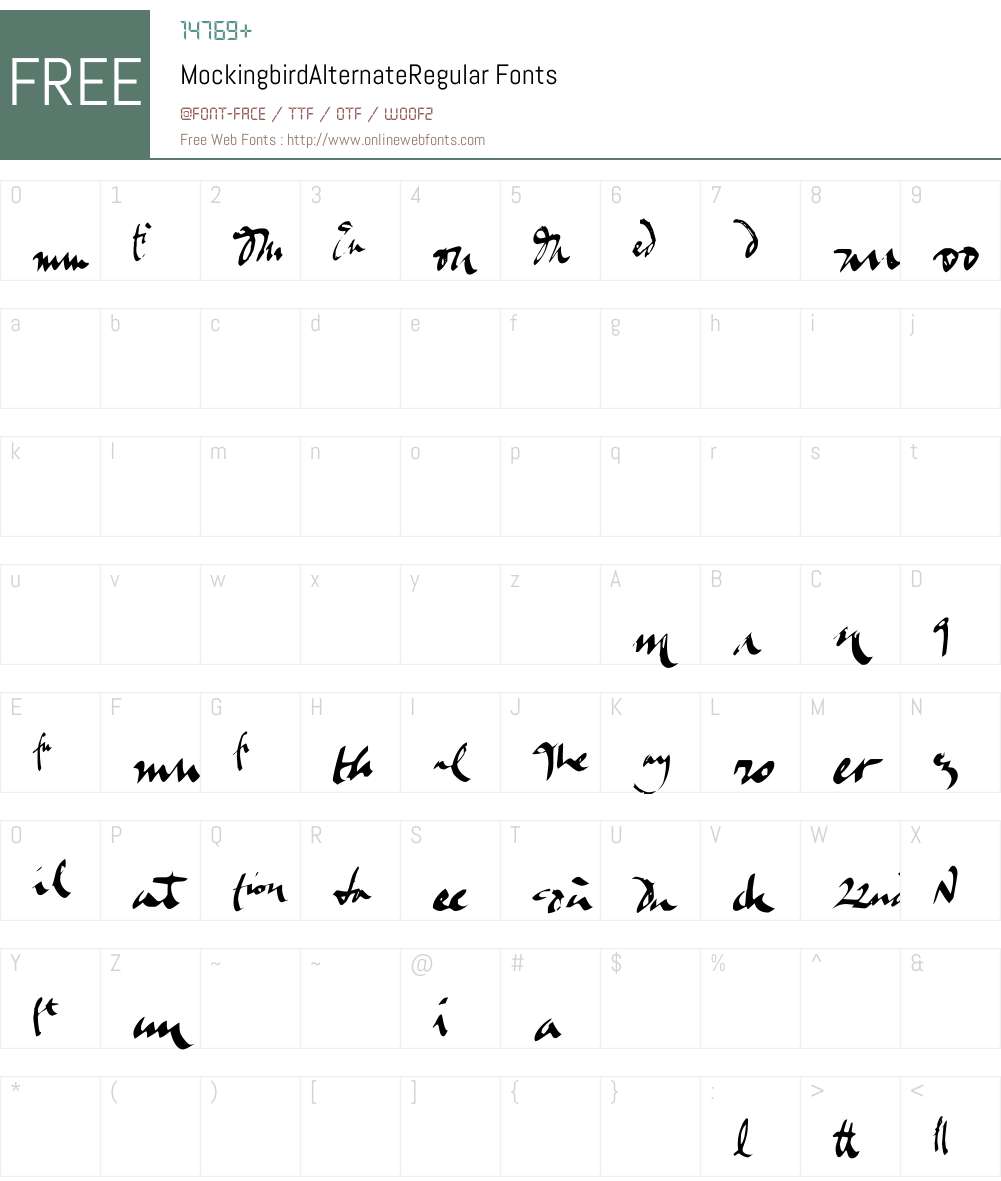 14769+
FREE
MockingbirdAlternateRegular Fonts
@FONT-FACE / TTF / OTF / WOOF2
Free Web Fonts : http://www.onlinewebfonts.com
0 1 2 3 4 5 6 7 8 9
ti on Th ed d oo
a b c d e f g h i j
k l m n o p q r s t
u v w x y z A B C D
m n q
E F G H I J K L M N
fu th The ay ro er
O P Q R S T U V W X
il at tion ta ee ck 22nd N
Y Z ~ ~ @ # $ % ^ &
ft i a
* ( ) [ ] { } : > <
l tt ll